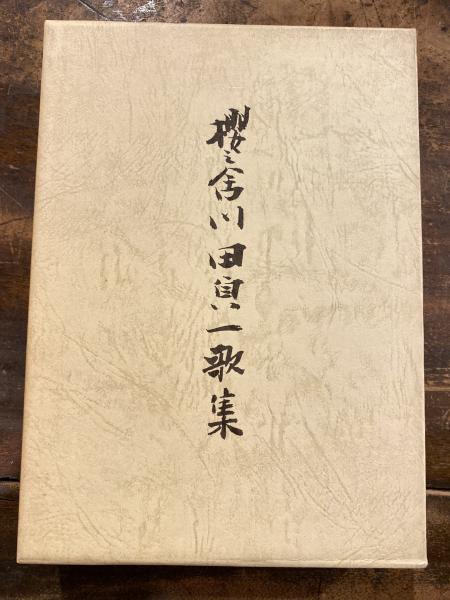 櫻之舎川田貞一歌集